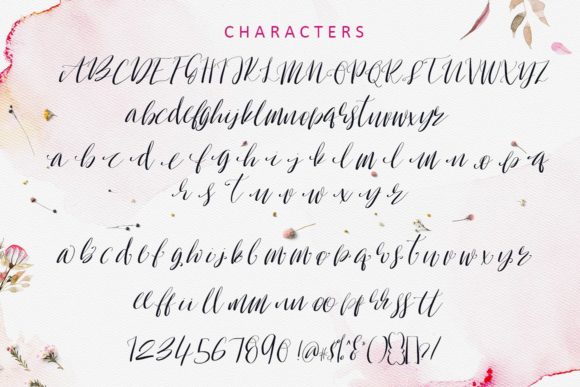 CHARACTERS
ABCDEFGHIJKLMNOPQRSTUVWXYZ
abcdefghijklmnopqrstuvwxyz
a b c d e f g h i j k l m l m n o p q
r s t u v w x y z
a b c d e f g h i j k l m n o p q r s t u v w x y z
ee ff ii ll mm nn oo pp rr ss tt
1234567890 !@#$%^&*(){}[]?/